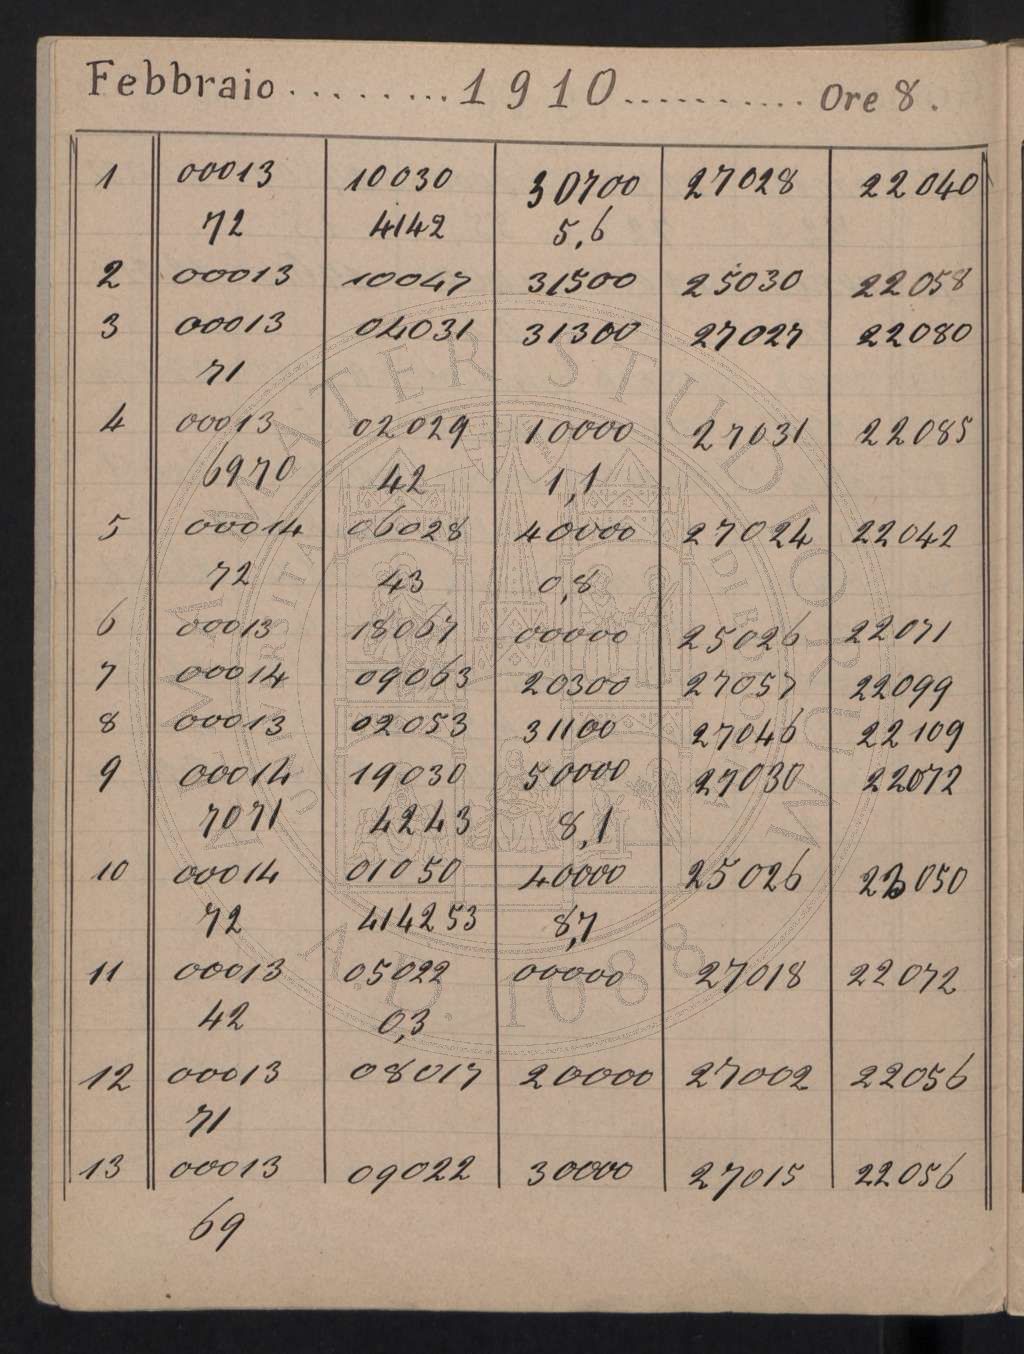 Febbraio ......... 1910 ........... Ore 8.
1 00013 10030 30700 27028 22040
72 4142 5,6
2 00013 10047 31500 25030 22058
3 00013 04031 31300 27027 22080
71
4 00013 02029 10000 27031 22085
6970 42 1,1
5 00014 06028 40000 27024 22042
72 43 0,8
6 00013 18067 00000 25026 22071
7 00014 09063 20300 27057 22099
8 00013 02053 31100 27046 22109
9 00014 19030 50000 27030 22072
7071 4243 8,1
10 00014 01050 40000 25026 22050
72 414253 8,7
11 00013 05022 00000 27018 22072
42 0,3
12 00013 08017 20000 27002 22056
71
13 00013 09022 30000 27015 22056
69
ALMA MATER STUDIORUM
A.D. 1088